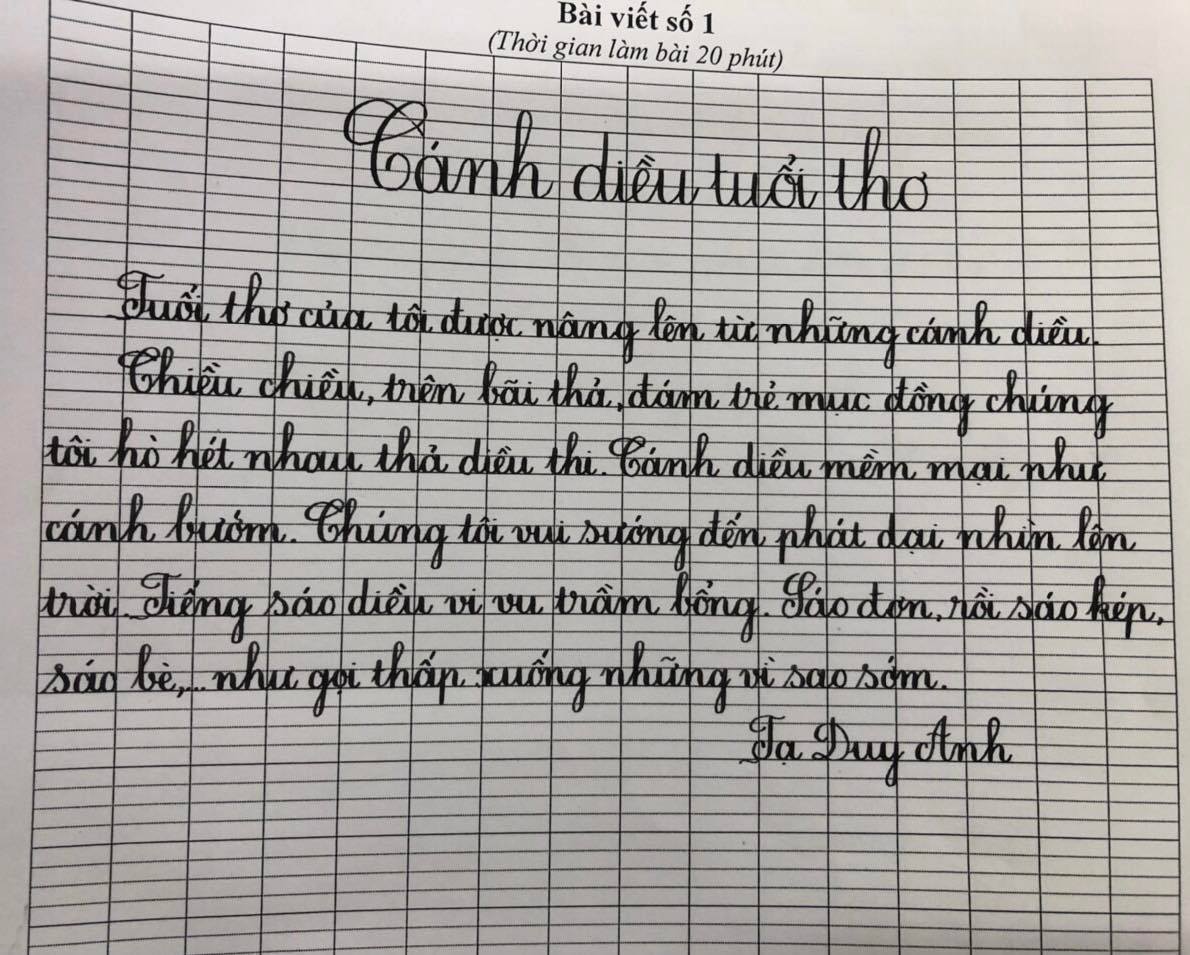 Bài viết số 1
(Thời gian làm bài 20 phút)
Cánh diều tuổi thơ
Tuổi thơ của tôi được nâng lên từ những cánh diều.
Chiều chiều, trên bãi thả, đám trẻ mục đồng chúng
tôi hò hét nhau thả diều thi. Cánh diều mềm mại như
cánh bướm. Chúng tôi vui sướng đến phát dại nhìn lên
trời. Tiếng sáo diều vi vu trầm bổng. Sáo đơn, rồi sáo kép,
sáo bè,... như gọi thấp xuống những vì sao sớm.
Tạ Duy Anh